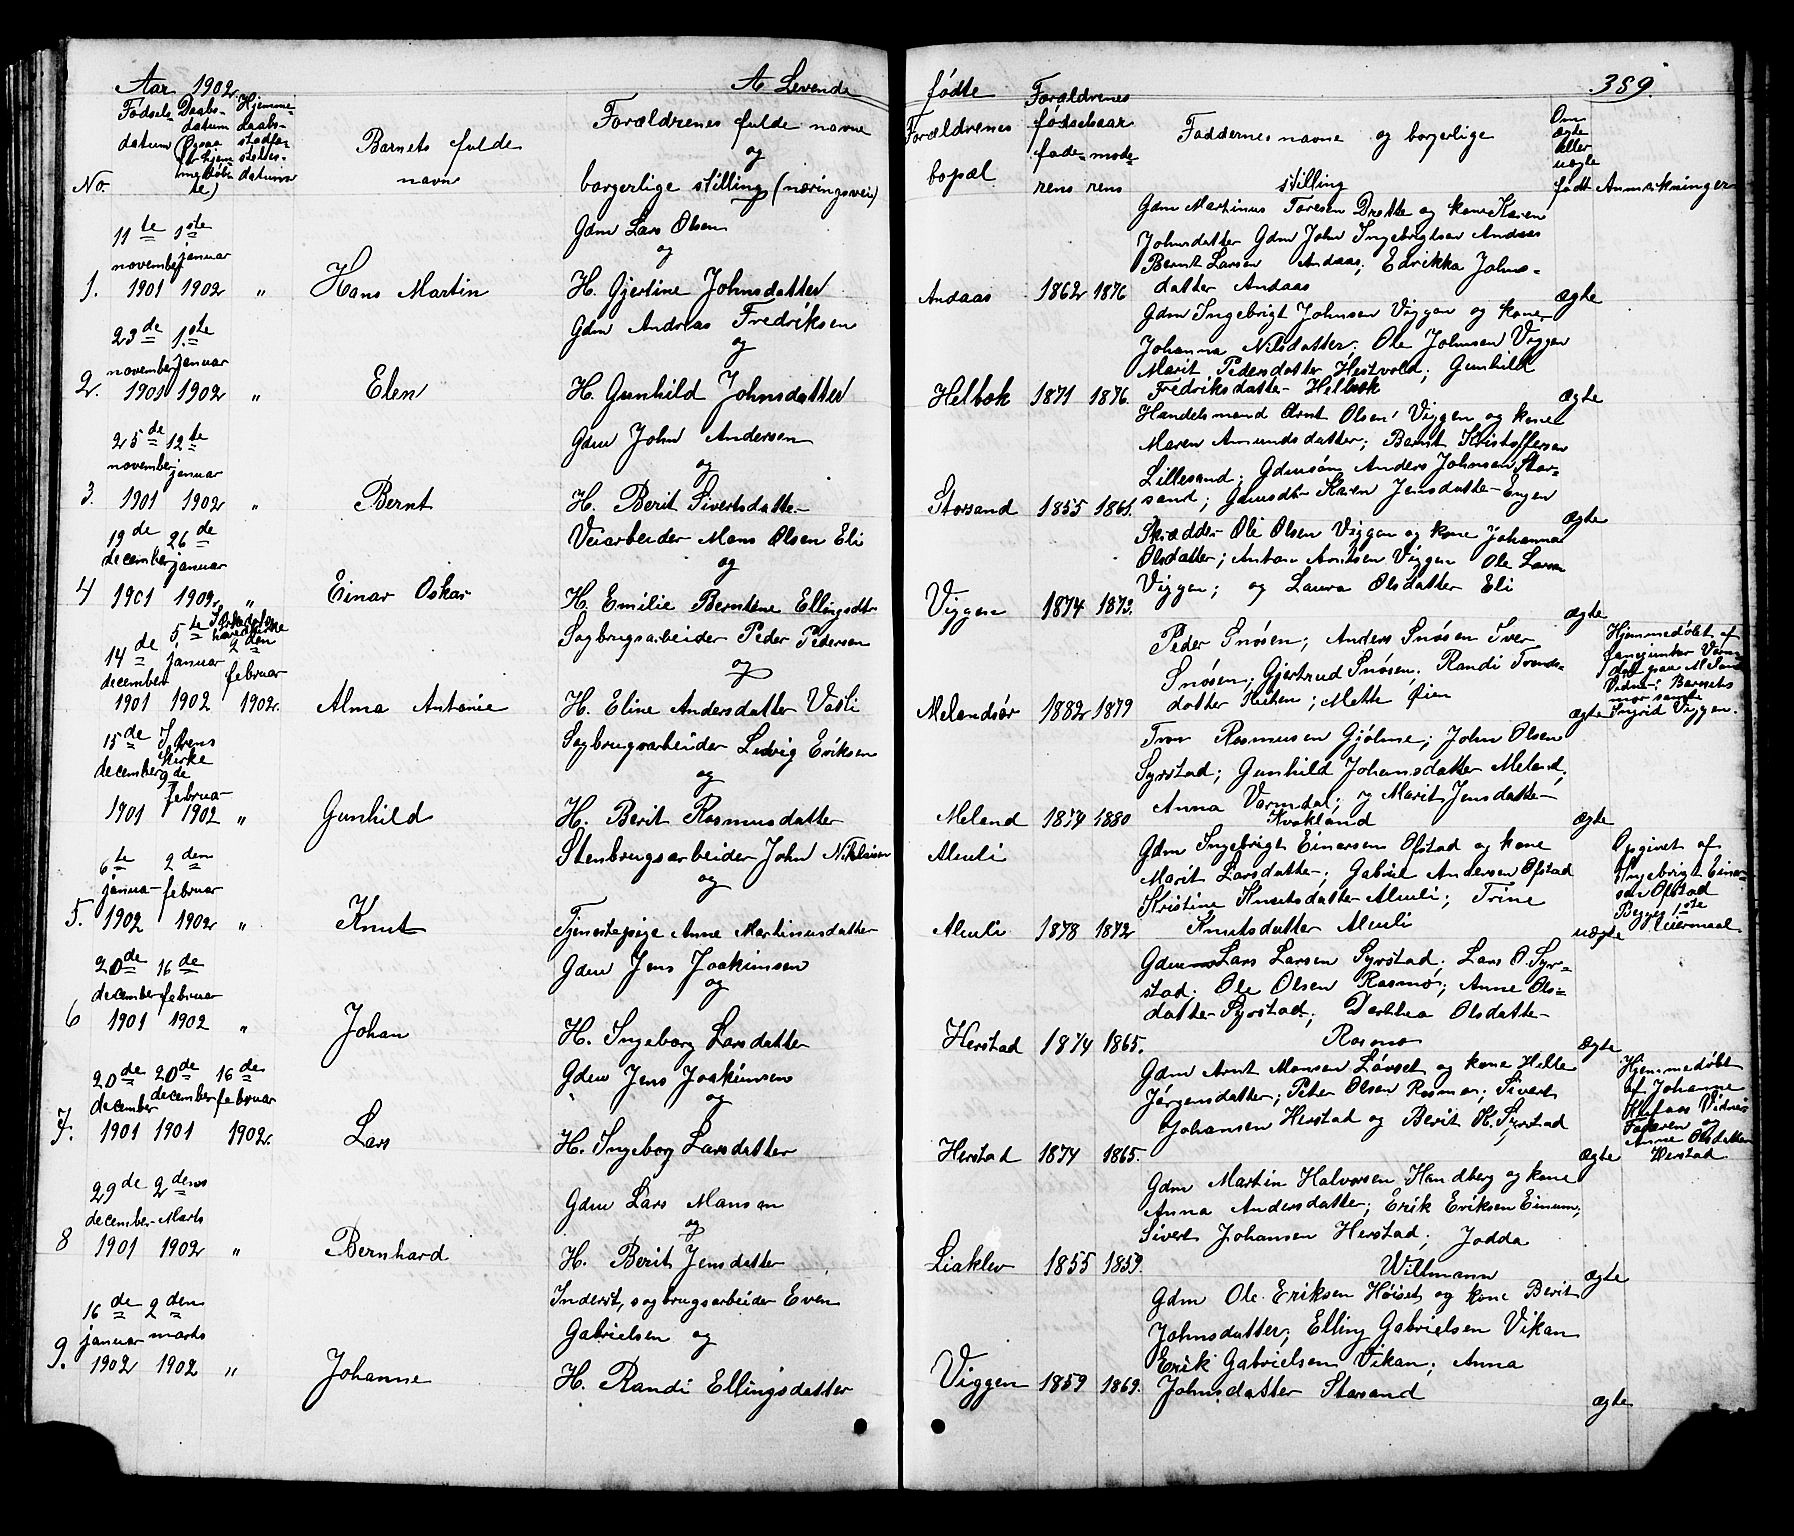 Aar 1902. A Levende
No.
Fødsels datum
Daabs- datum (Ogsaa for hjem
Hjemme- daabs-
datum
Barnets fulde navn
Forældrenes fulde navne
og
borgerlige stilling (næringsvei)
11te november 1901
1ste januar 1902
1. Hans Martin
Gdm Lars Olsen
og
H. Gjertine Johnsdatter
23de november 1901
1.ste januar 1902
2. Elen
Gdm Andreas Fredriksen
og
H. Gunhild Johnsdatter
25de november 1901
12te januar 1902
3. Bernt
Gdm John Andersen
og
H. Berit Sivertsdatter
19de december 1901
26de januar 1902
4 Einar Oskar
Veiarbeider Mons Olsen Eli
og
H. Emilie Berntine Ellingsdtr
14de december 1901
5te januar 1902
2den februar 1902.
Alma Antonie
Sagbrugsarbeider Peder Pedersen
og
H. Eline Andersdatter Vasli
15de december 1901
kirke 9de februar 1902
Gunhild
Sagbrugsarbeider Ludvig Eriksen
og
H. Berit Rasmusdatter
6te januar 1902
2den februar 1902
5. Knut
Stenbrugsarbeider John Nikolaisen
og
Tjenestepige Anne Martinusdatter
20de december 1901
16de februar 1902
6 Johan
Gdm Jens Joakimsen
og
H. Ingeborg Larsdatter
20de december 1901
20de december 1901
16de februar 1902.
7. Lars
Gdm Jens Joakimsen
og
H. Ingeborg Larsdatter
29de december 1901
2den Marts 1902
8 Bernhard
Gdm Lars Mansen
og
H. Berit Jensdatter
16de januar 1902
2den marts 1902
9. Johanne
Inderst, sagbrugsarbeider Even
Gabrielsen og
H. Randi Ellingsdatter
fødte 389.
Forældrenes bopæl
Forældrenes fødselsaar
fade- rens mode- rens
Faddernes navne og borgerlige
stilling
Om ægte eller uægte født
Anmærkninger
Gdm Martinus Toresen Drette og kone Karen
Johnsdatter Gdm John Ingebrigtsen Andaas
Bernt Larsen Andaas; Edrikka Johns-
Andaas 1862 1876 datter Andaas ægte
Gdm Ingebrigt Johnsen Viggen og kone
Johanna Nilsdatter; Ole Johnsen Viggen
Marit Pedersdatter Hestvold; Gunhild
Helbæk 1871 1876. Fredriksdatter Helbæk ægte
Handelsmand Arnt Olsen Viggen og kone
Maren Amundsdatter; Bernt Kristoffersen
Lillesand; Gdmsøn Anders Johnsen Stor-
Storsand 1855 1861. sand; Gdmsdtr Karen Jensdatter Engen ægte
Skrædder Ole Olsen Viggen og kone Johanna
Olsdatter; Anton Arntsen Viggen Ole Larsen
Viggen 1874 1873. Viggen; og Laura Olsdatter Eli ægte
Peder Snøsen; Anders Snøsen Iver
Snøsen; Gjertrud Snøsen; Randi Tronds-
Melandsør 1882 1879 datter; Mette Øien ægte
Hjemmedøbt af
Vidne: Barnets
mor samt
Ingrid Viggen.
Tron Rasmusen Gjølme; John Olsen
Syrstad; Gunhild Johansdatter Meland;
Anna Varmdal; og Marit Jensdatter
Meland 1874 1880 Kvakland ægte
Aluli
Gdm Ingebrigt Einarsen Ofstad og kone
Marit Larsdatter; Gabriel Andersen Ofstad
Kristine Knutsdatter Aluli; Trine
Aluli 1878 1872 Knutsdatter Aluli uægte
Opgivet af
Ingebrigt Einar-
sen Ofstad
Begges 1ste
Leiermaal
Gdm Lars Larsen Syrstad; Lars O. Syr-
stad; Ole Olsen Rasmo; Anne Ols-
datter Syrstad; Dorthea Olsdatter
Herstad 1874 1865. Rosmo ægte
Gdm Arnt Monsen Løvset og kone Helle
Jørgensdatter; Peter Olsen Rosmo; Sivert
Johansen Herstad og Berit K. Syrstad
Herstad 1874 1865. ægte
Hjemmedøbt
af Johanne
Vidner
Faderen og
Anne Olsdatter
Herstad
Gdm Martin Halvorsen Handberg og kone
Anna Andersdatter; Erik Eriksen Einum;
Sivert Johansen Herstad; Jodda
Liaklev 1855 1859. Willmann ægte
Gdm Ole Eriksen Høiset og kone Berit
Johnsdatter; Elling Gabrielsen Vikan
Erik Gabrielsen Vikan; Anna
Viggen 1859 1869. Johnsdatter Storsand ægte